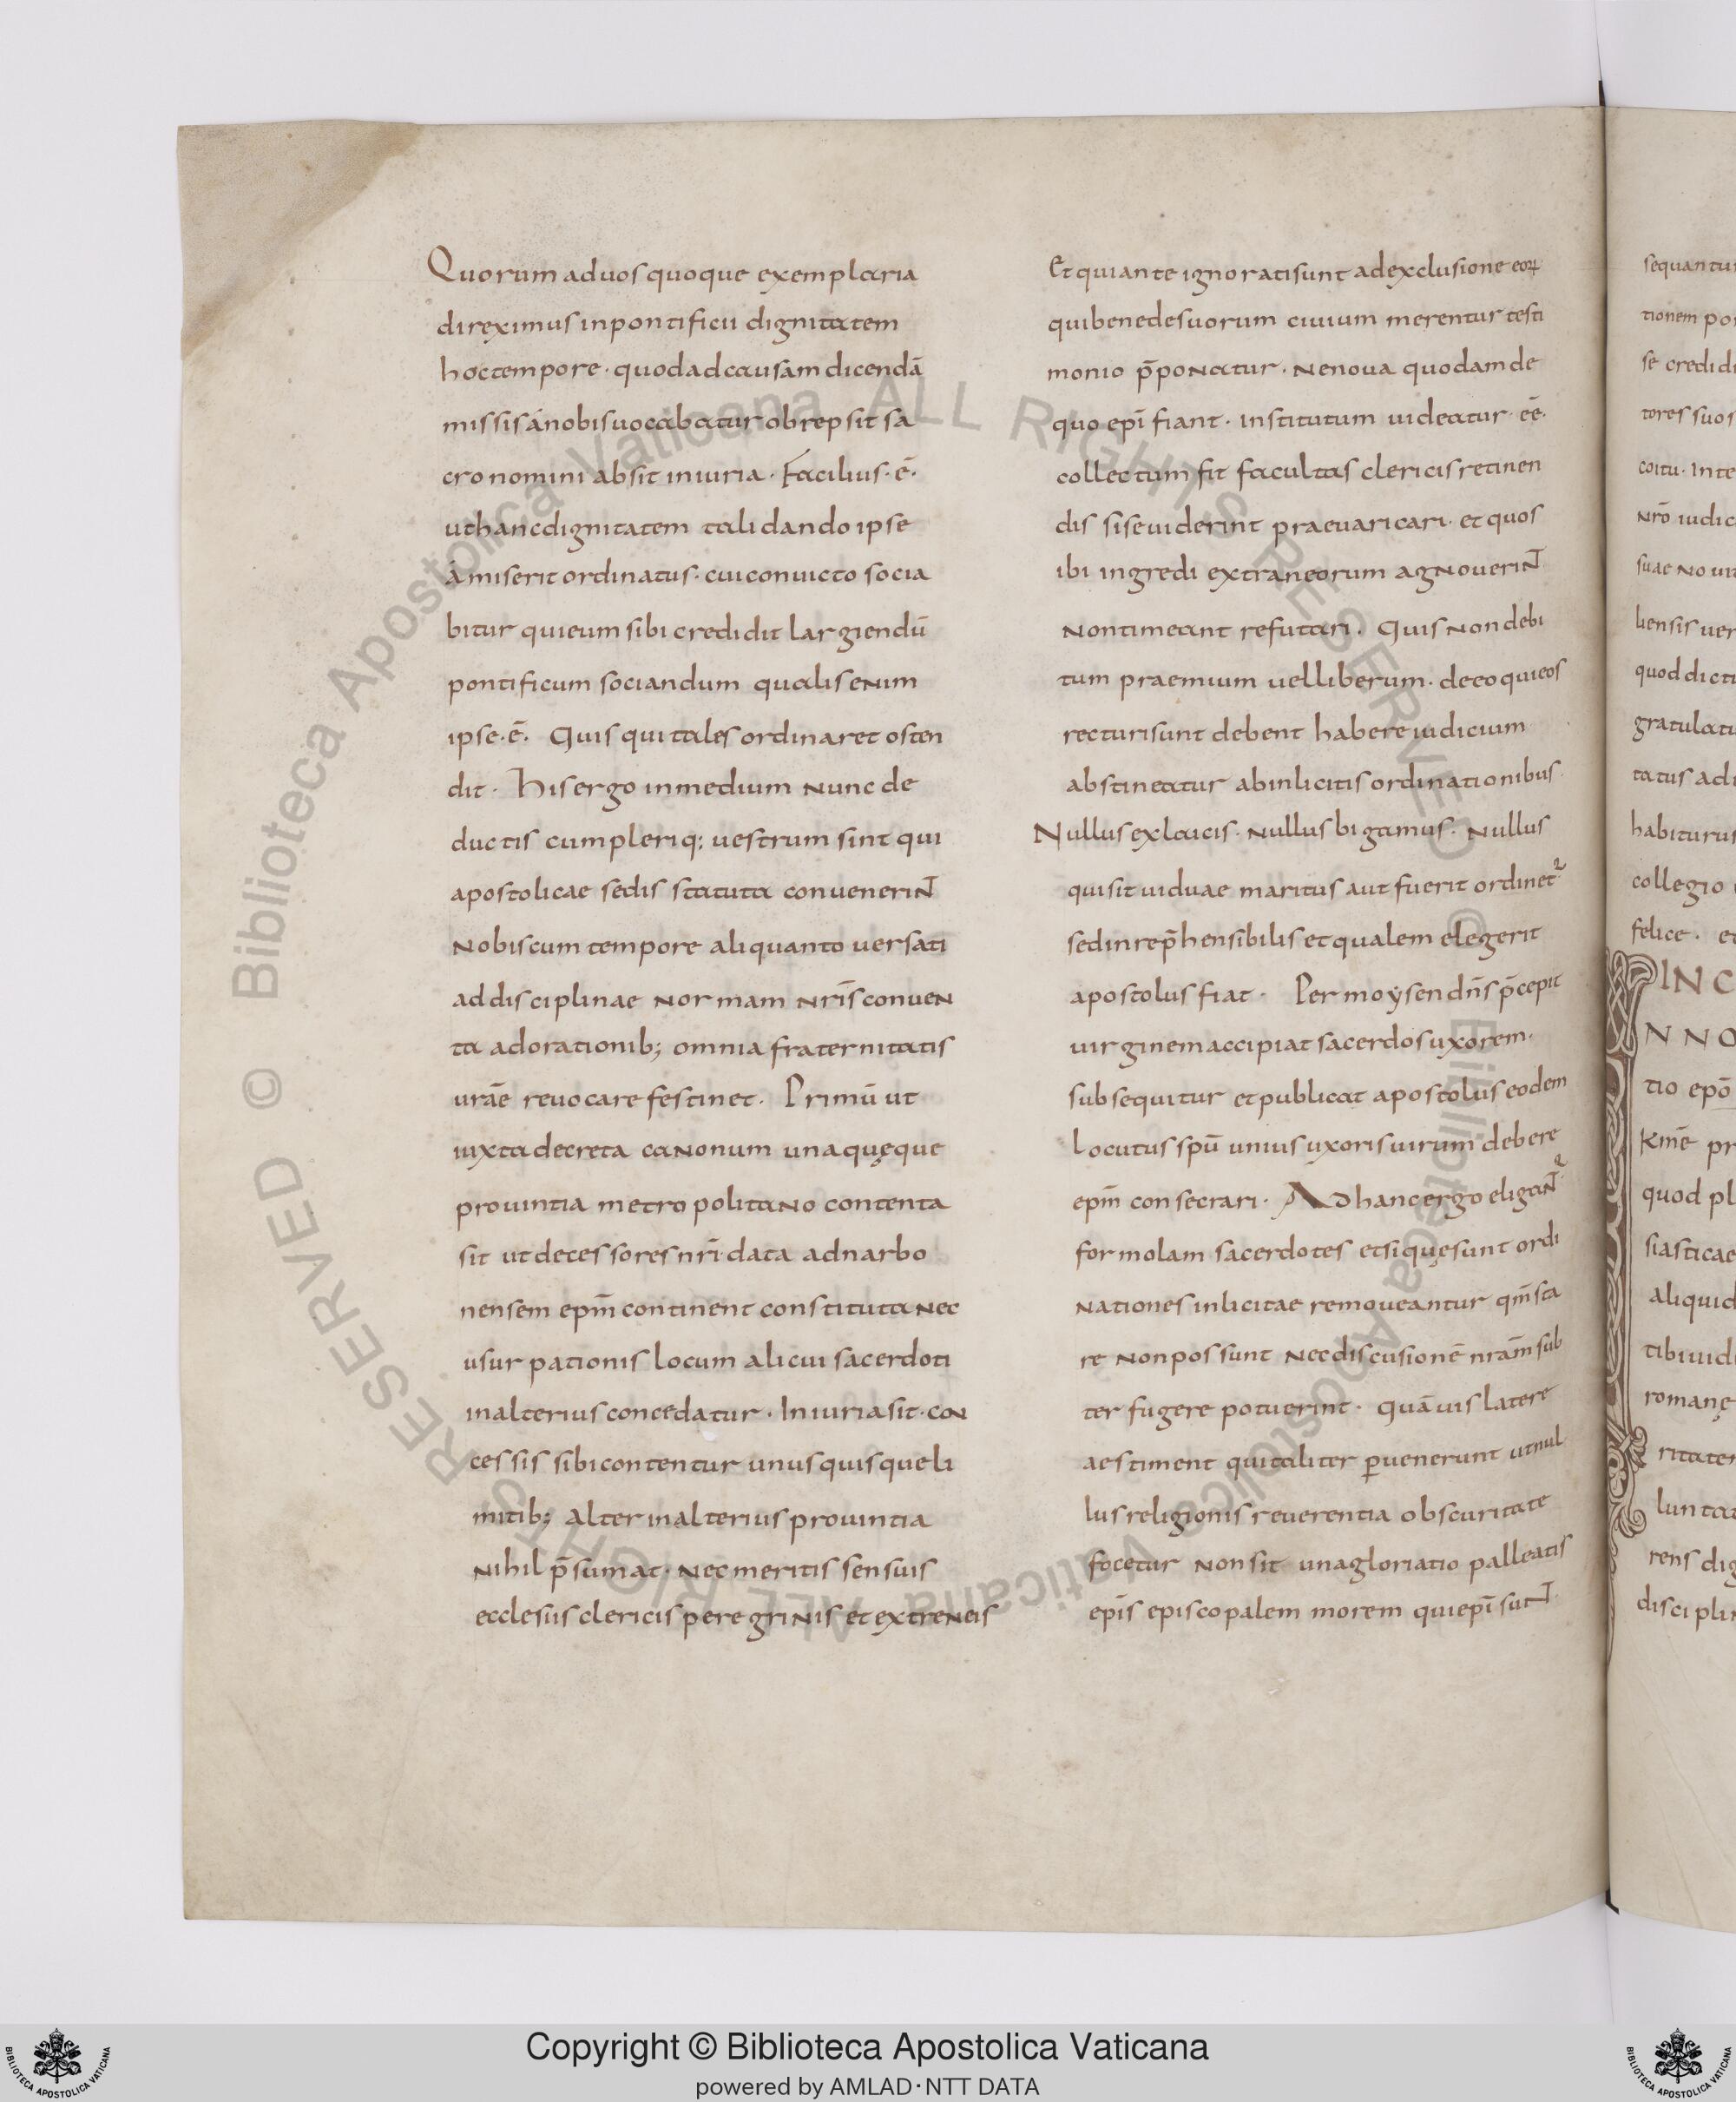 Quorum aduos quoque exemplaria
direximus inpontificii dignitatem
hoc tempore · quodadcausam dicendā
missis ánobisuocabatur obrepsit sa
cro nomini absit iniuria · Facilius · ē ·
uthancdignitatem tali dando ipse
ámiserit ordinatus · cuiconuicto socia
bitur quieum sibi credidit largiendū
pontificum sociandum qualis enim
ipse · ē · Quis qui tales ordinaret osten
dit · His ergo inmedium nunc de
ductis cum pleriq; uestrum sint qui
apostolicae sedis statuta conuenerint
nobiscum tempore aliquanto uersati
ad disciplinae normam nrīs conuen
ta adorationib; omnia fraternitatis
urāe reuocare festinet · Primū ut
iuxta decreta canonum unaquęque
prouintia metropolitano contenta
sit ut decessores nrī data adnarbo
nensem epm̄ continent constituta nec
usurpationis locum alicui sacerdoti
inalterius concedatur · Iniuria sit · con
cessis sibi contentur unusquisque li
mitib; alter inalterius prouintia
nihil p̄sumat · nec meritis sensuis
ecclesiis clericis peregrinis et extreneis
Et quiante ignorati sunt adexclusione eoꝝ
quibenedesuorum ciuium merentur testi
monio p̄ponatur · nenoua quodam de
quo epī fiant · institutum uideatur · eē ·
collectum fit facultas clericis retinen
dis siseuiderint praeuaricari · et quos
ibi ingredi extraneorum agnouerint
nontimeant refutari · Quis non debi
tum praemium uelliberum · deeo quieos
recturisunt debent habere iudicium
abstineatur abinlicitis ordinationibus ·
Nullus exlaicis · nullus bigamus · nullus
quisit uiduae maritus aut fuerit ordinet᷑
sedinrep̄hensibilis et qualem elegerit
apostolus fiat · Per moẏsen dn̄s p̄cepit
uirginem accipiat sacerdos uxorem ·
subsequitur et publicat apostolus eodem
locutus spū unius uxoris uirum debere
epm̄ consecrari · Ad hanc ergo eligant᷑
formolam sacerdotes etsi quęsunt ordi
nationes inlicitae remoueantur qm̄ sta
rę non possunt nec discusionē nrām sub
ter fugere potuerint · Quāuis latere
aestiment quitaliter ꝑuenerunt utnul
lus religionis reuerentia obscuritate
focetur non sit unagloriatio palleatis
epīs episcopalem morem qui epī sunt ·
sequantur
tionem po
se credidi
tores suos
coitu · Inte
nrō iudic
suae noui
liensis uer
quod dicti
gratulatu
tatus adi
habiturus
collegio
felice · et
INC
NNO
tio epō
Kmē pr
quod pl
siasticae
aliquid
tibi uid
romanę
ritater
luntat
rens dig
disciplin
© Biblioteca Apostolica Vaticana ALL RIGHTS RESERVED
© Biblioteca Apostolica Vaticana ALL RIGHTS RESERVED
BIBLIOTECA APOSTOLICA VATICANA
Copyright © Biblioteca Apostolica Vaticana
powered by AMLAD·NTT DATA
BIBLIOTECA APOSTOLICA VATICANA